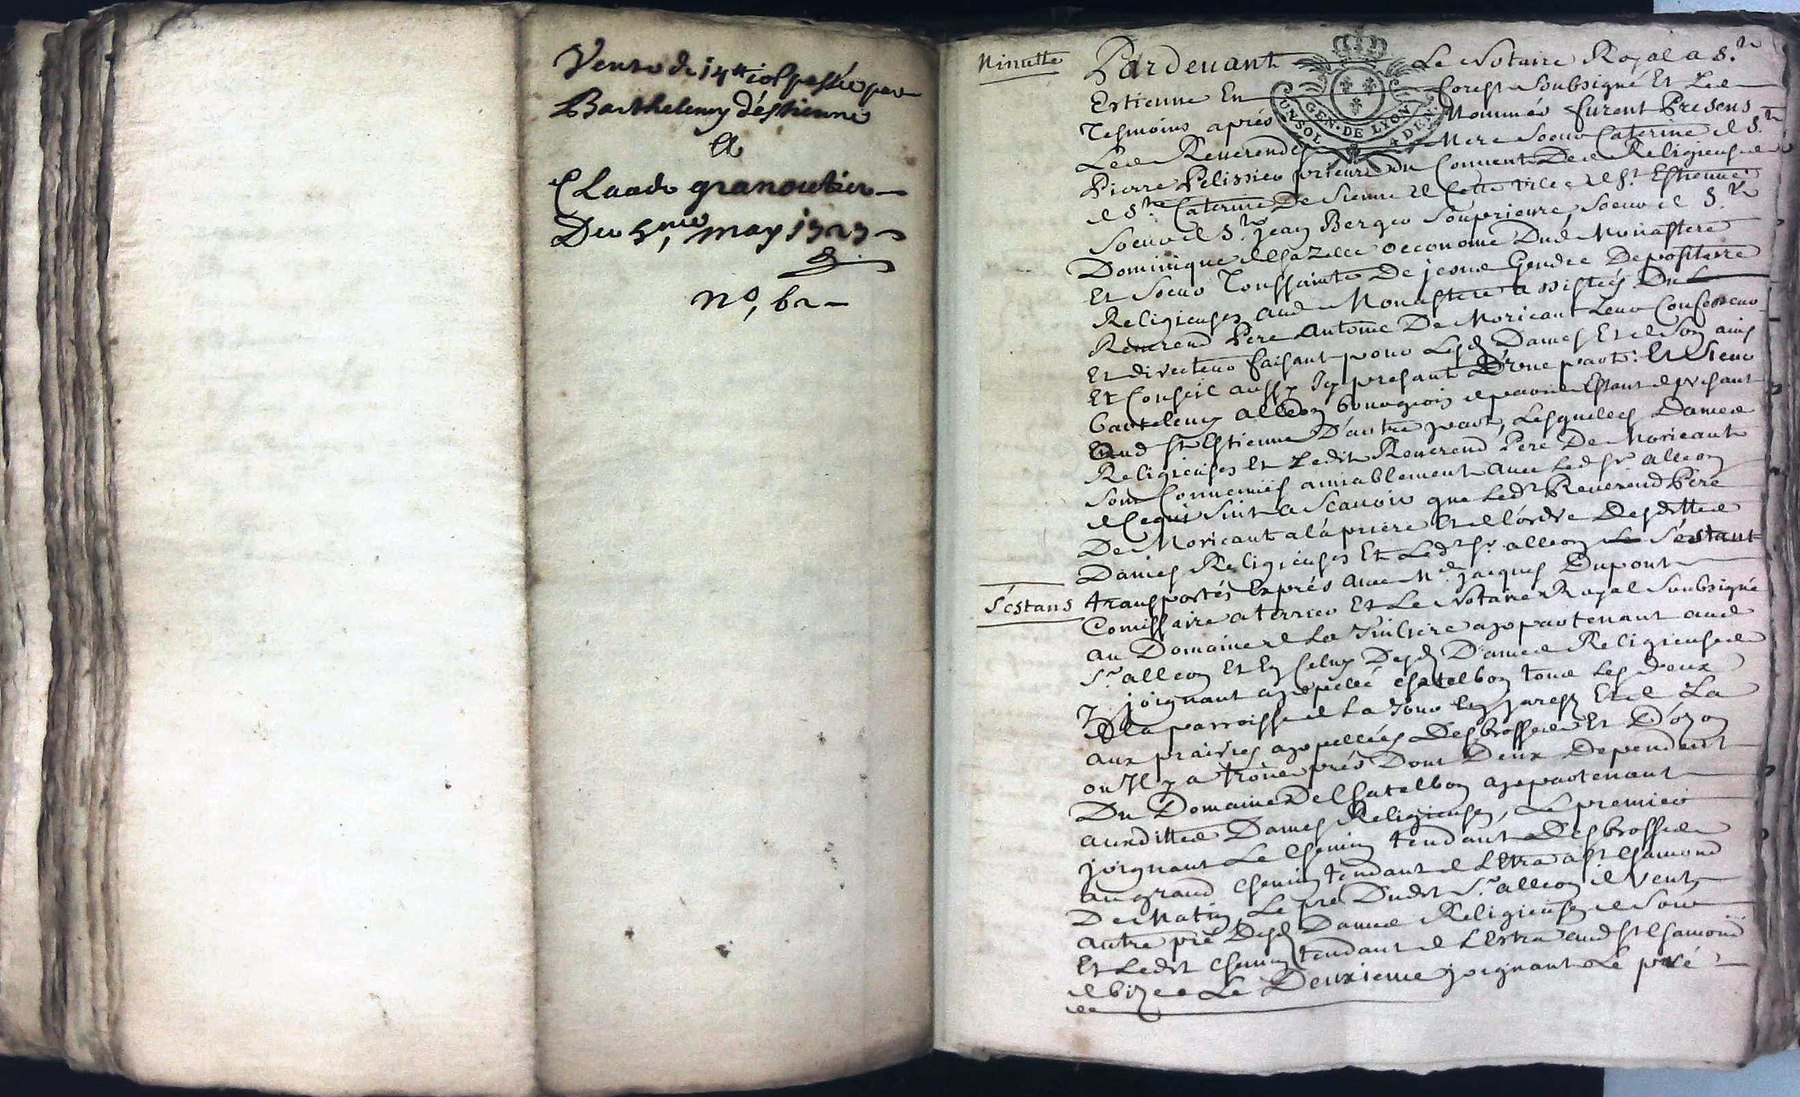 Vente de 14tt 10s passée par
Barthelemy d'éstienne
A
Claude granoutier
Du 5me, may 1727
no, 62
Minutte
Pardevant Le Notaire Royal a St
Estienne En forest soubsigné Et Les
Tesmoins apres Nommés furent Presens
Les Reverendes Mere Soeur Caterine de St
Pierre Pelissier prieure du Couvent Des Religieuses
de Ste Caterine De Sienne de Cette ville de St Estienne
Soeur de St jean Berger Souprieure, Soeur de St
Dominique Chazelle oeconome Dud Monastere
Et Soeur Toussainte De jesus Gendre Depositaire
Religieuses aud Monastere assistées Du
Reverend Pere Antoine De Moricaut Leur Confesseur
Et directeur faisant pour Lesd Dames Et de Son avis
Et Conseil aussy Icy presant D'une part: Et Sieur
Barteleny alleon bourgeois de paris Estant de presant
Aud St Estienne D'autre part, Lesquelles Dames
Religieuses Et Ledit Reverend Pere De Moricaut
Sont Convenües amiablement avec Led Sr alleon
de Ce qui Suit a Scavoir que Ledt Reverend Pere
De Moricaut a la priere Et de l'ordre Desdittes
Dames Religieuses Et Ledt Sr alleon S'estant
S'estans
transportés Exprés avec Me jacques Dupont
Comissaire a terrier Et Le Notaire Royal Soubsigné
au Domaine de La appartenant aud
Sr alleon Et En Celuy Desd Dames Religieuses
y joignant appellé Chatelbon tous Les deux
de La parroisse de La Tour En jarest Et de La
aux prairies appellées Desbrosses Et D'ozon
ou Il y a trois prés Dont Deux Dependent
Du Domaine De Chatelbon appartenant
auxdittes Dames Religieuses, Le premier
joignant Le Chemin tendant Desbrosses
au grand Chemin tendant de LEtra a St Chamond
De Matin, Le pré Dudit Sr alleon de vent,
autre pré Desd Dames Religieuses de Soir
Et Ledit Chemin tendant de LEstra aud St Chamond
de bize Le Deuxieme joignant Le pré